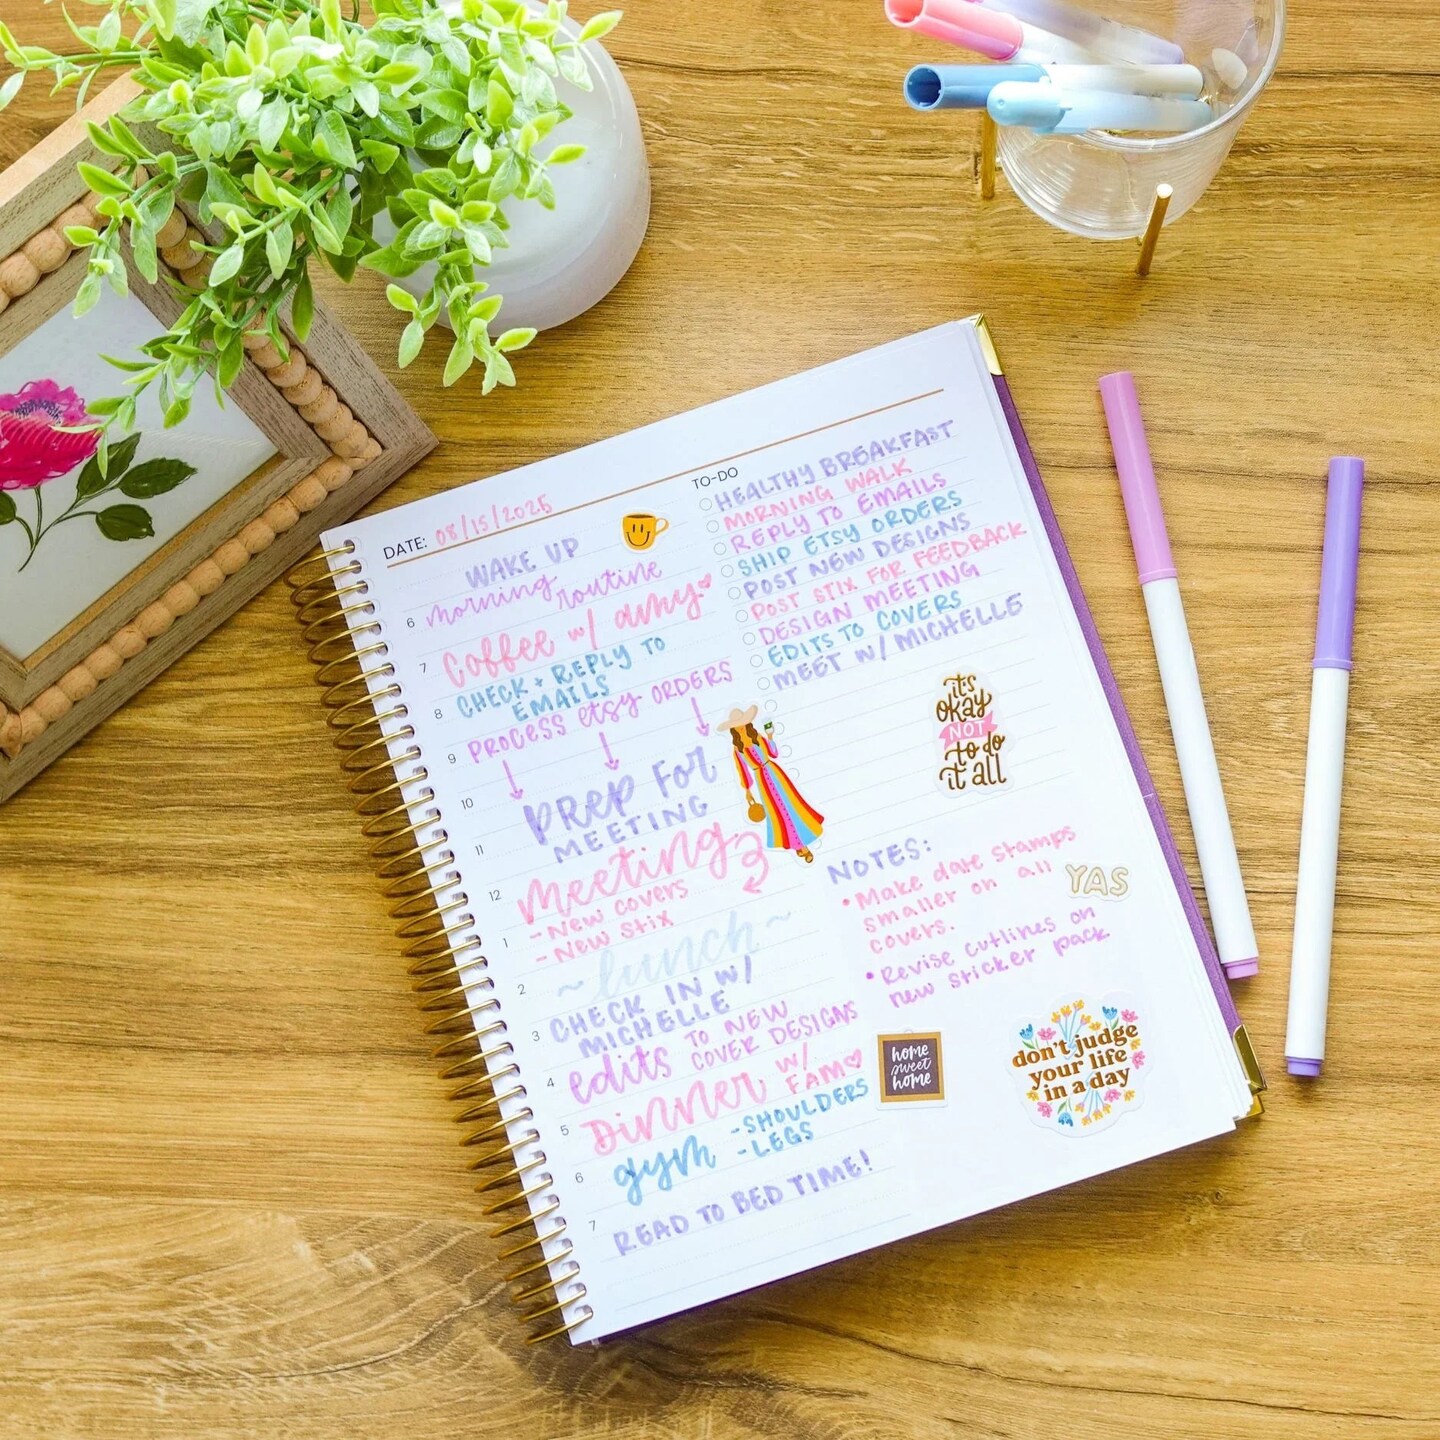 DATE: 08/15/2025
WAKE UP
morning routine
6
coffee w/ amy
7
CHECK + REPLY TO
EMAILS
8
PROCESS etsy ORDERS
9
PREP FOR
10
MEETING
11
meeting
12
-New covers
-New Stix
1
~lunch~
2
CHECK IN W/
MICHELLE
3
edits TO NEW
COVER DESIGNS
4
DINNER W/
FAM
5
gym -SHOULDERS
-LEGS
6
READ TO BED TIME!
7
TO-DO
HEALTHY BREAKFAST
MORNING WALK
REPLY TO EMAILS
SHIP ETSY ORDERS
POST NEW DESIGNS
POST STIX FOR FEEDBACK
DESIGN MEETING
EDITS TO COVERS
MEET W/ MICHELLE
it's
okay
NOT
to do
it all
NOTES:
• Make date stamps
smaller on all
covers.
• Revise cutlines on
new sticker pack
YAS
home
sweet
home
don't judge
your life
in a day